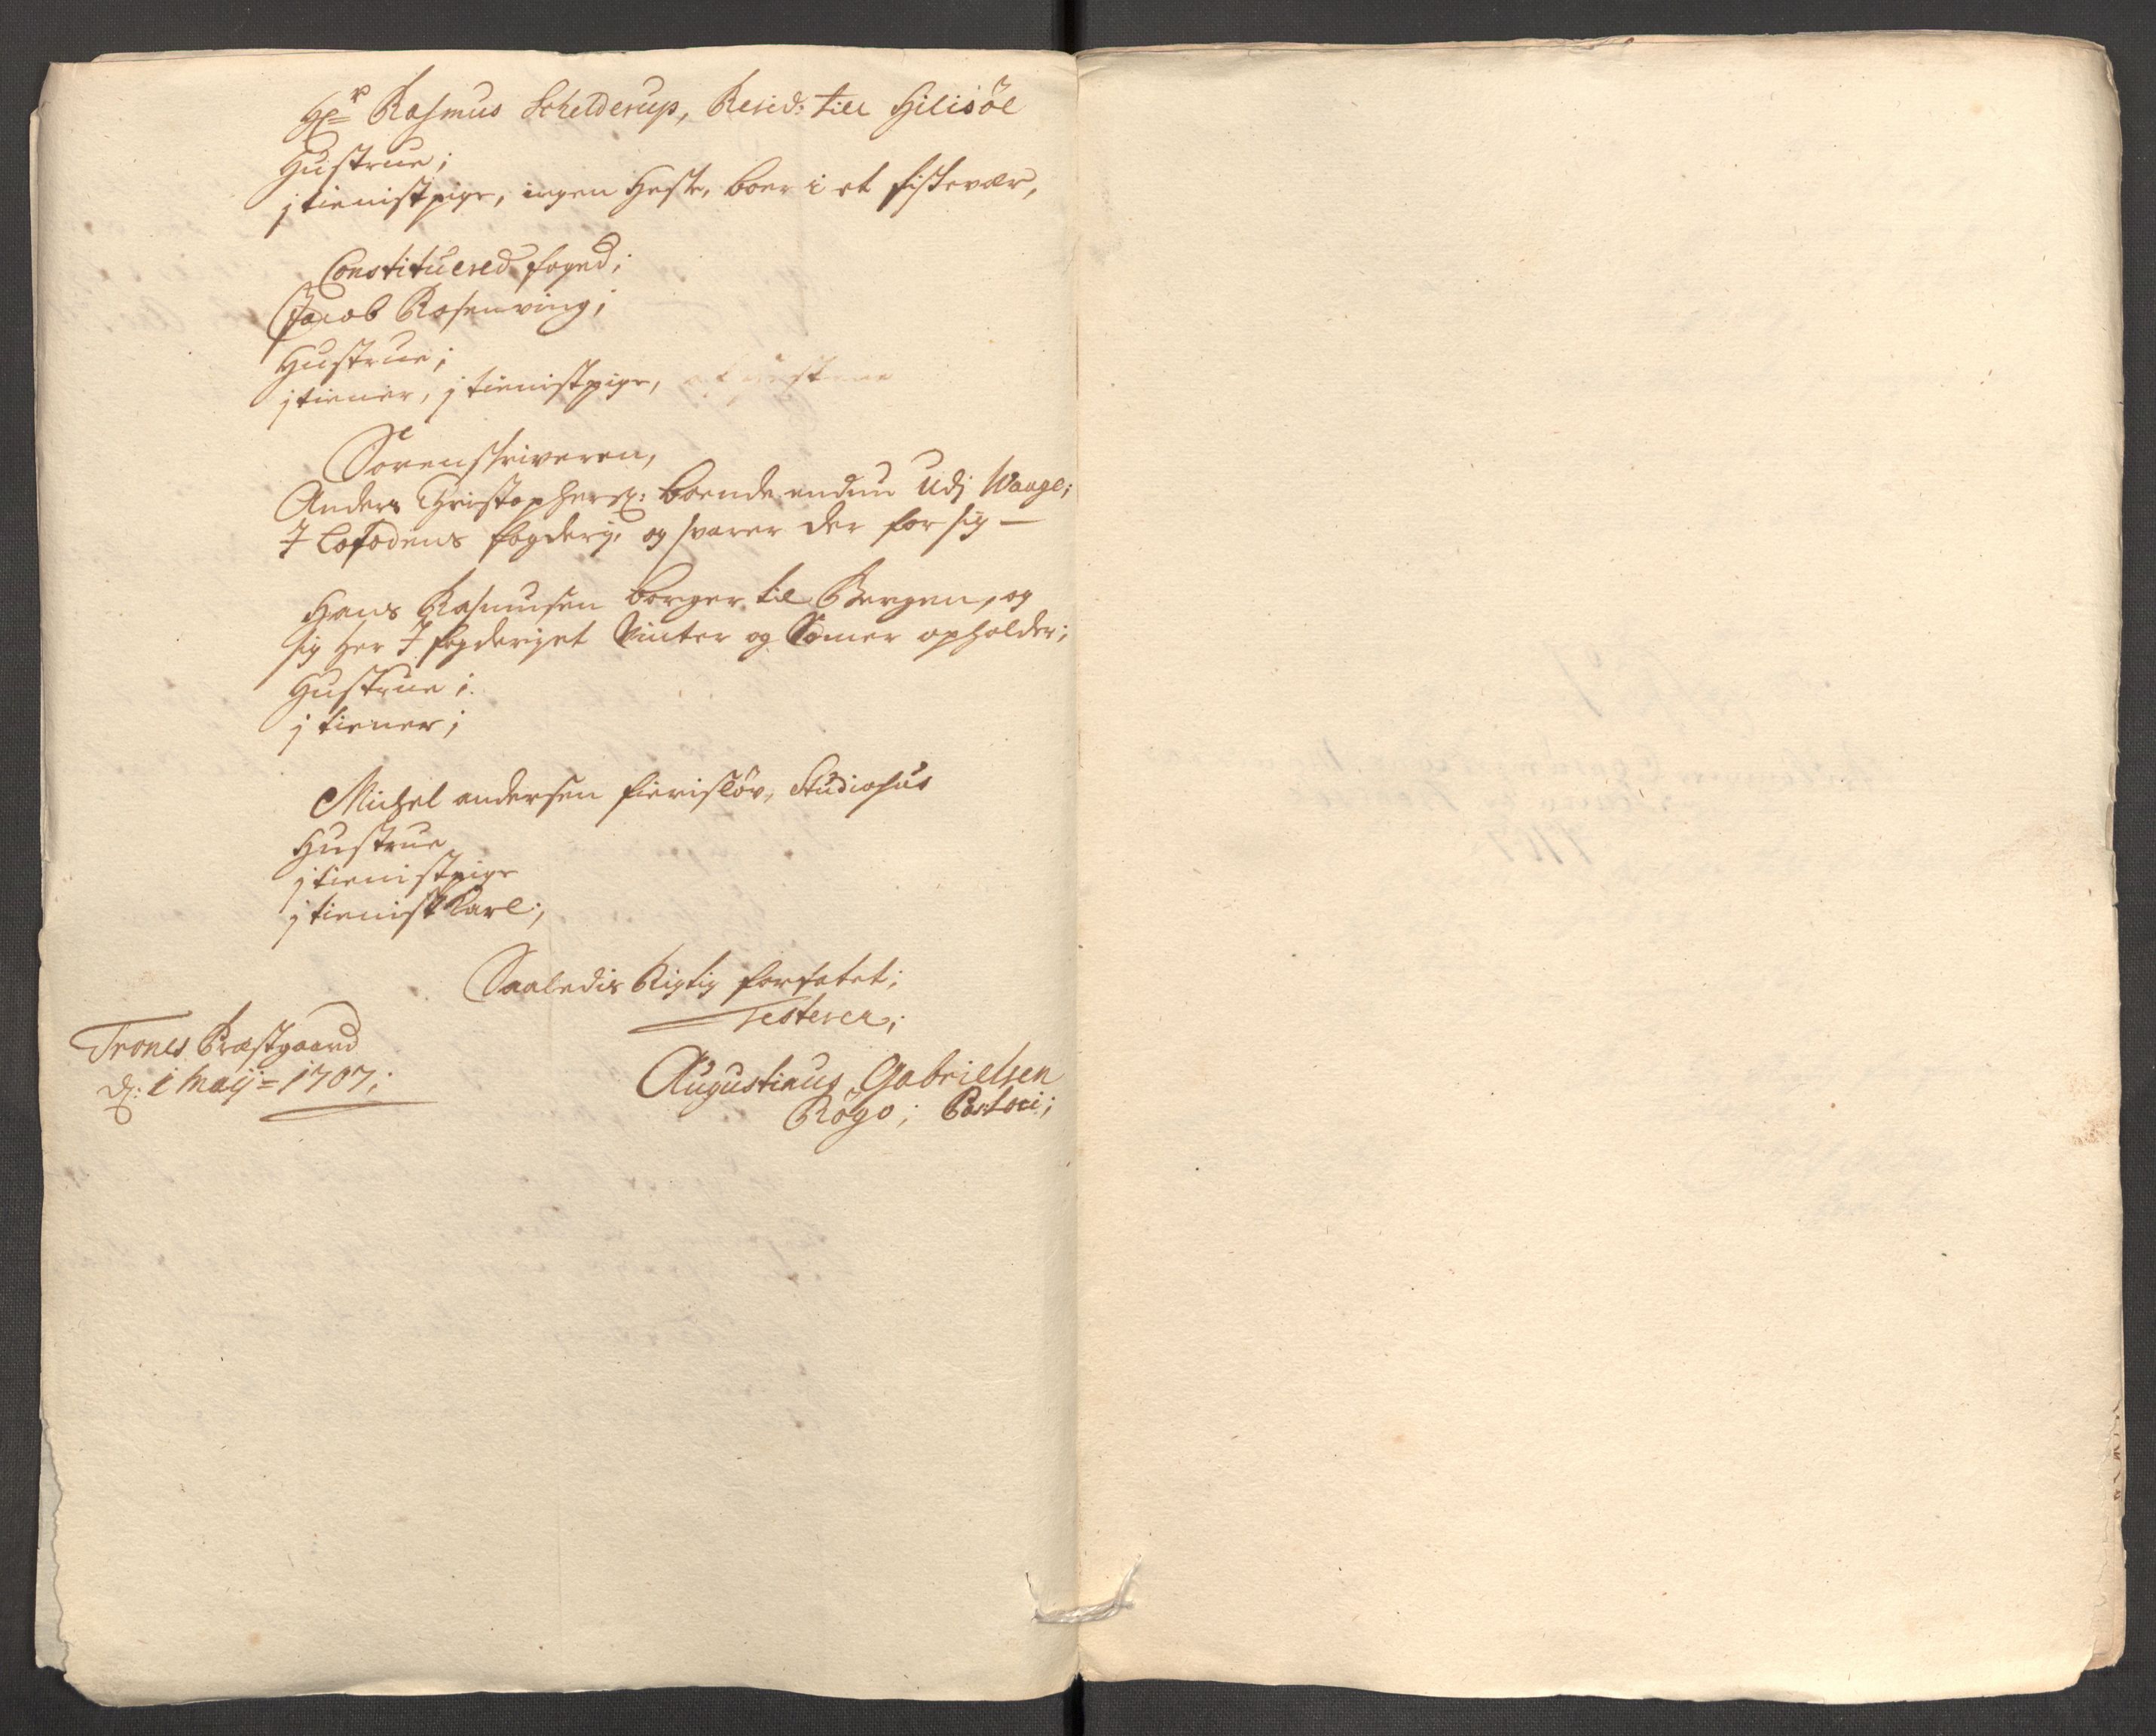 Hr Rasmus Schelderup, Resid: till Hilisöe
Hustrue;
j tienistpige, ingen Heste, boer i et fiskevær,
Constituered foged;
Jacob Rosenving;
Hustrue;
j tiener, j tienistpige,
Sorenskriveren,
Anders Christophers: boende endnu Udj Waage;
I Lofodens fogderj, og svarer der for sig —
Hans Rasmusen borger til Bergen, og
sig her I fogderiet Vinter og Somer opholder;
Hustrue;
j tiener;
Michel andersen fierisløv, Studiosus
Hustrue
j tienistpige
j tienist Karl;
Saaledis Rigtig forfatet;
Testerer;
Trones Præstgaard
d: 1 Maij = 1707;
Augustinus Gabrielsen
Rögo; Past: loci;